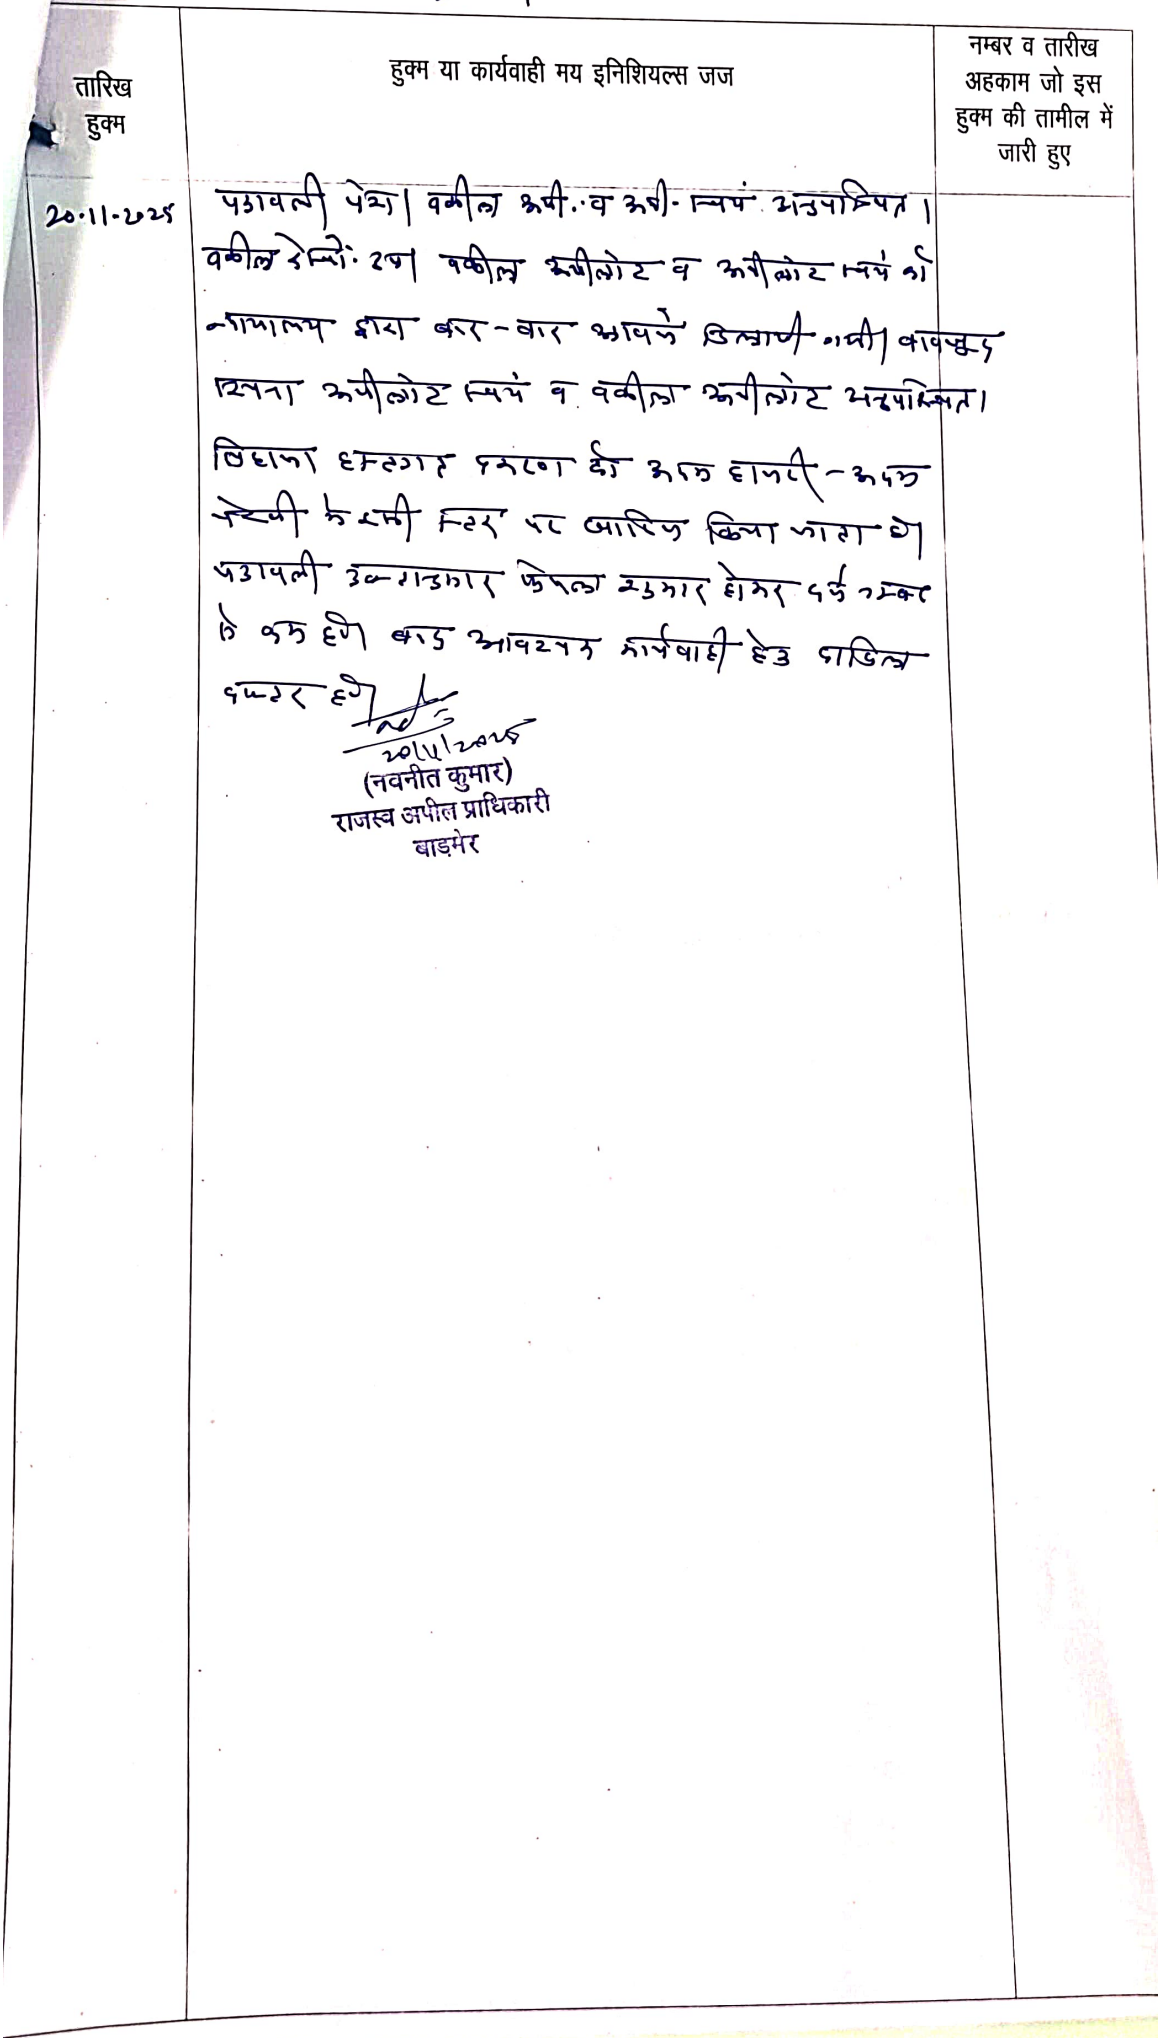 तारिख
हुक्म
हुक्म या कार्यवाही मय इनिशियल्स जज
नम्बर व तारीख
अहकाम जो इस
हुक्म की तामील में
जारी हुए
20.11.2025
पत्रावली पेश। वकील अपी. व अपी. स्वयं अनुपस्थित।
वकील रेस्पो. उप। वकील अपीलांट व अपीलांट स्वयं को
न्यायालय द्वारा बार-बार आवाजें दिलायी गयी। बावजूद
अपीलांट स्वयं व वकील अपीलांट अनुपस्थित।
लिहाजा हस्तगत प्रकरण को अदम हाजरी-अदम
पैरवी के इसी स्टेज पर खारिज किया जाता है।
पत्रावली फैसल शुमार होकर दर्ज नम्बर
से कम होवे। बाद आवश्यक कार्यवाही हेतु दाखिल
दफ्तर होवे।
20/11/2025
(नवनीत कुमार)
राजस्व अपील प्राधिकारी
बाड़मेर